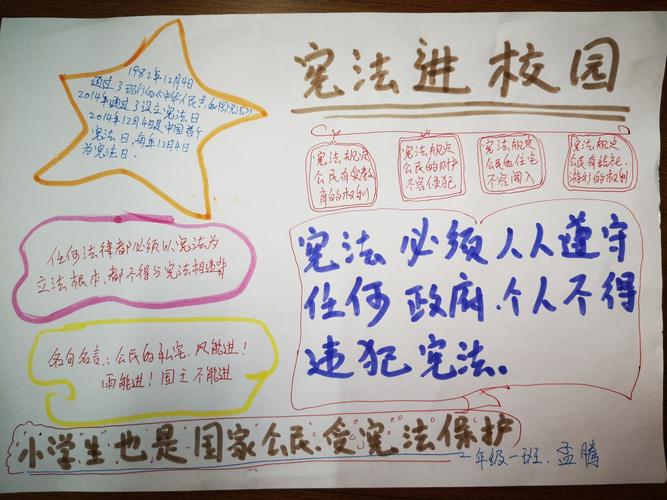 宪法进校园
1982年12月4日
通过了现行的《中华人民共和国宪法》
2014年通过了设立宪法日
2014年12月4日是中国首个
宪法日，每年12月4日
为宪法日.
宪法规定
公民有受教
育的权利
宪法规定
公民的财产
不容侵犯
宪法规定
公民的住宅
不容闯入
宪法规定
公民有结社
游行的权利
任何法律都必须以宪法为
立法根本，都不得与宪法相违背
宪法必须人人遵守
任何政府.个人不得
违犯宪法.
名句名言：公民的私宅，风能进！
雨能进！国王不能进
小学生也是国家公民.受宪法保护
二年级一班.孟腾